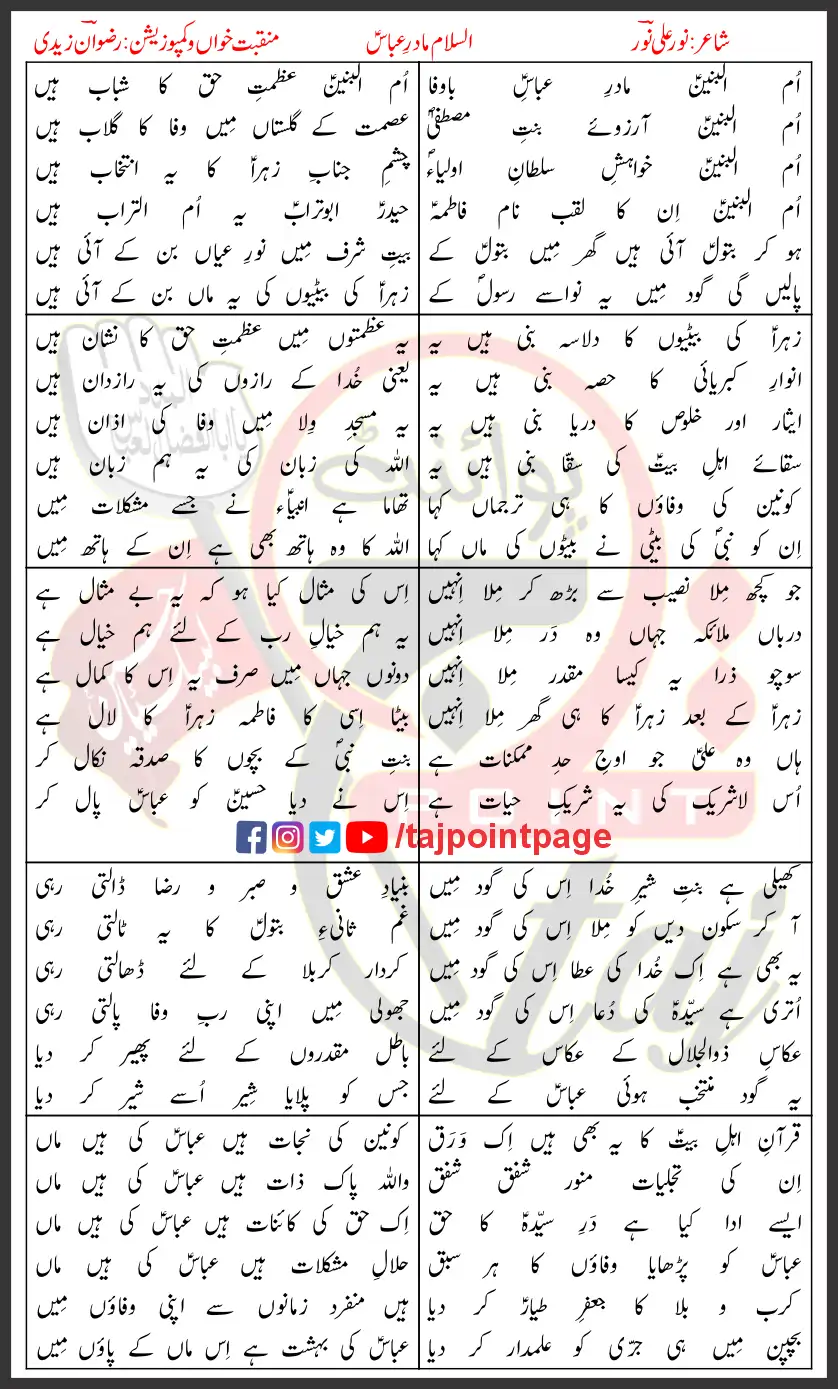 شاعر: نور علی نورؔ
السلام مادرِ عباسؑ
منقبت خواں و کمپوزیشن: رضوان زیدی
اُم البنینؑ مادرِ عباسِؑ باوفا
اُم البنینؑ آرزوئے بنتِ مصطفیٰؐ
اُم البنینؑ خواہشِ سلطانِ اولیاءؑ
اُم البنینؑ اِن کا لقب نام فاطمہؑ
ہو کر بتولؑ آئی ہیں گھر مِیں بتولؑ کے
پالیں گی گود مِیں یہ نواسے رسولؐ کے
اُم البنینؑ عظمتِ حق کا شباب ہیں
عصمت کے گلستاں مِیں وفا کا گلاب ہیں
چشمِ جنابِ زہراؑ کا یہ انتخاب ہیں
حیدرؑ ابوترابؑ یہ اُم التراب ہیں
بیتِ شرف مِیں نورِ عیاں بن کے آئی ہیں
زہراؑ کی بیٹیوں کی یہ ماں بن کے آئی ہیں
زہراؑ کی بیٹیوں کا دلاسہ بنی ہیں یہ
انوارِ کبریائی کا حصہ بنی ہیں یہ
ایثار اور خلوص کا دریا بنی ہیں یہ
سقائے اہلِ بیتؑ کی سقّا بنی ہیں یہ
کونین کی وفاؤں کا ہی ترجماں کہا
اِن کو نبیؐ کی بیٹی نے بیٹوں کی ماں کہا
یہ عظمتوں مِیں عظمتِ حق کا نشان ہیں
یعنی خُدا کے رازوں کی یہ رازدان ہیں
یہ مسجدِ وِلا مِیں وفا کی اذان ہیں
اللہ کی زبان کی یہ ہم زبان ہیں
تھاما ہے انبیاءؑ نے جسے مشکلات مِیں
اللہ کا وہ ہاتھ بھی ہے اِن کے ہاتھ مِیں
جو کچھ مِلا نصیب سے بڑھ کر مِلا اِنہیں
درباں ملائکہ جہاں وہ دَر مِلا اِنہیں
سوچو ذرا یہ کیسا مقدر مِلا اِنہیں
زہراؑ کے بعد زہراؑ کا ہی گھر مِلا اِنہیں
ہاں وہ علیؑ جو اوجِ حدِ ممکنات ہے
اُس لاشریک کی یہ شریکِ حیات ہے
اِس کی مثال کیا ہو کہ یہ بے مثال ہے
یہ ہم خیالِ رب کے لئے ہم خیال ہے
دونوں جہاں مِیں صرف یہ اِس کا کمال ہے
بیٹا اِسی کا فاطمہ زہراؑ کا لال ہے
بنتِ نبیؐ کے بچوں کا صدقہ نکال کر
اِس نے دیا حسینؑ کو عباسؑ پال کر
/tajpointpage
کھیلی ہے بنتِ شیرِ خُدا اِس کی گود مِیں
آ کر سکون دیں کو مِلا اِس کی گود مِیں
یہ بھی ہے اِک خُدا کی عطا اِس کی گود مِیں
اُتری ہے سیّدہؑ کی دُعا اِس کی گود مِیں
عکاسِ ذوالجلال کے عکاس کے لئے
یہ گود منتخب ہوئی عباسؑ کے لئے
بنیادِ عشق و صبر و رضا ڈالتی رہی
غم ثانیءِ بتولؑ کا یہ ٹالتی رہی
کردار کربلا کے لئے ڈھالتی رہی
جھولی مِیں اپنی ربِ وفا پالتی رہی
باطل مقدروں کے لئے پھیر کر دیا
جس کو پلایا شِیر اُسے شیر کر دیا
قرآنِ اہلِ بیتؑ کا یہ بھی ہیں اِک وَرَق
اِن کی تجلیات منور شفق شفق
ایسے ادا کیا ہے دَرِ سیّدہؑ کا حق
عباسؑ کو پڑھایا وفاؤں کا ہر سبق
کرب و بلا کا جعفرِ طیارؑ کر دیا
بچپن مِیں ہی جرّی کو علمدار کر دیا
کونین کی نجات ہیں عباسؑ کی ہیں ماں
واللہ پاک ذات ہیں عباسؑ کی ہیں ماں
اِک حق کی کائنات ہیں عباسؑ کی ہیں ماں
حلالِ مشکلات ہیں عباسؑ کی ہیں ماں
ہیں منفرد زمانوں سے اپنی وفاؤں مِیں
عباسؑ کی بہشت ہے اِس ماں کے پاؤں مِیں
پوائنٹ
POINT
taj